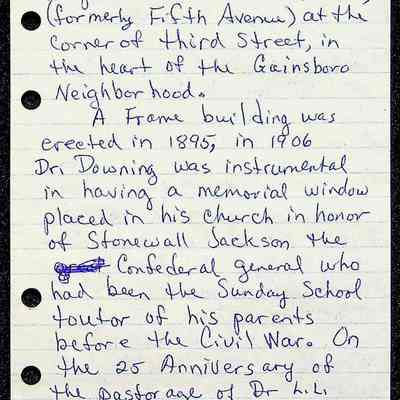 (formerly Fifth Avenue) at the
corner of third Street, in
the heart of the Gainsboro
Neighborhood.
A Frame building was
erected in 1895, in 1906
Dr. Downing was instrumental
in having a memorial window
placed in his church in honor
of Stonewall Jackson the
Confederal general who
had been the Sunday School
toutor of his parents
before the Civil War. On
the 25 Anniversary of
the pastorage of Dr L.L.